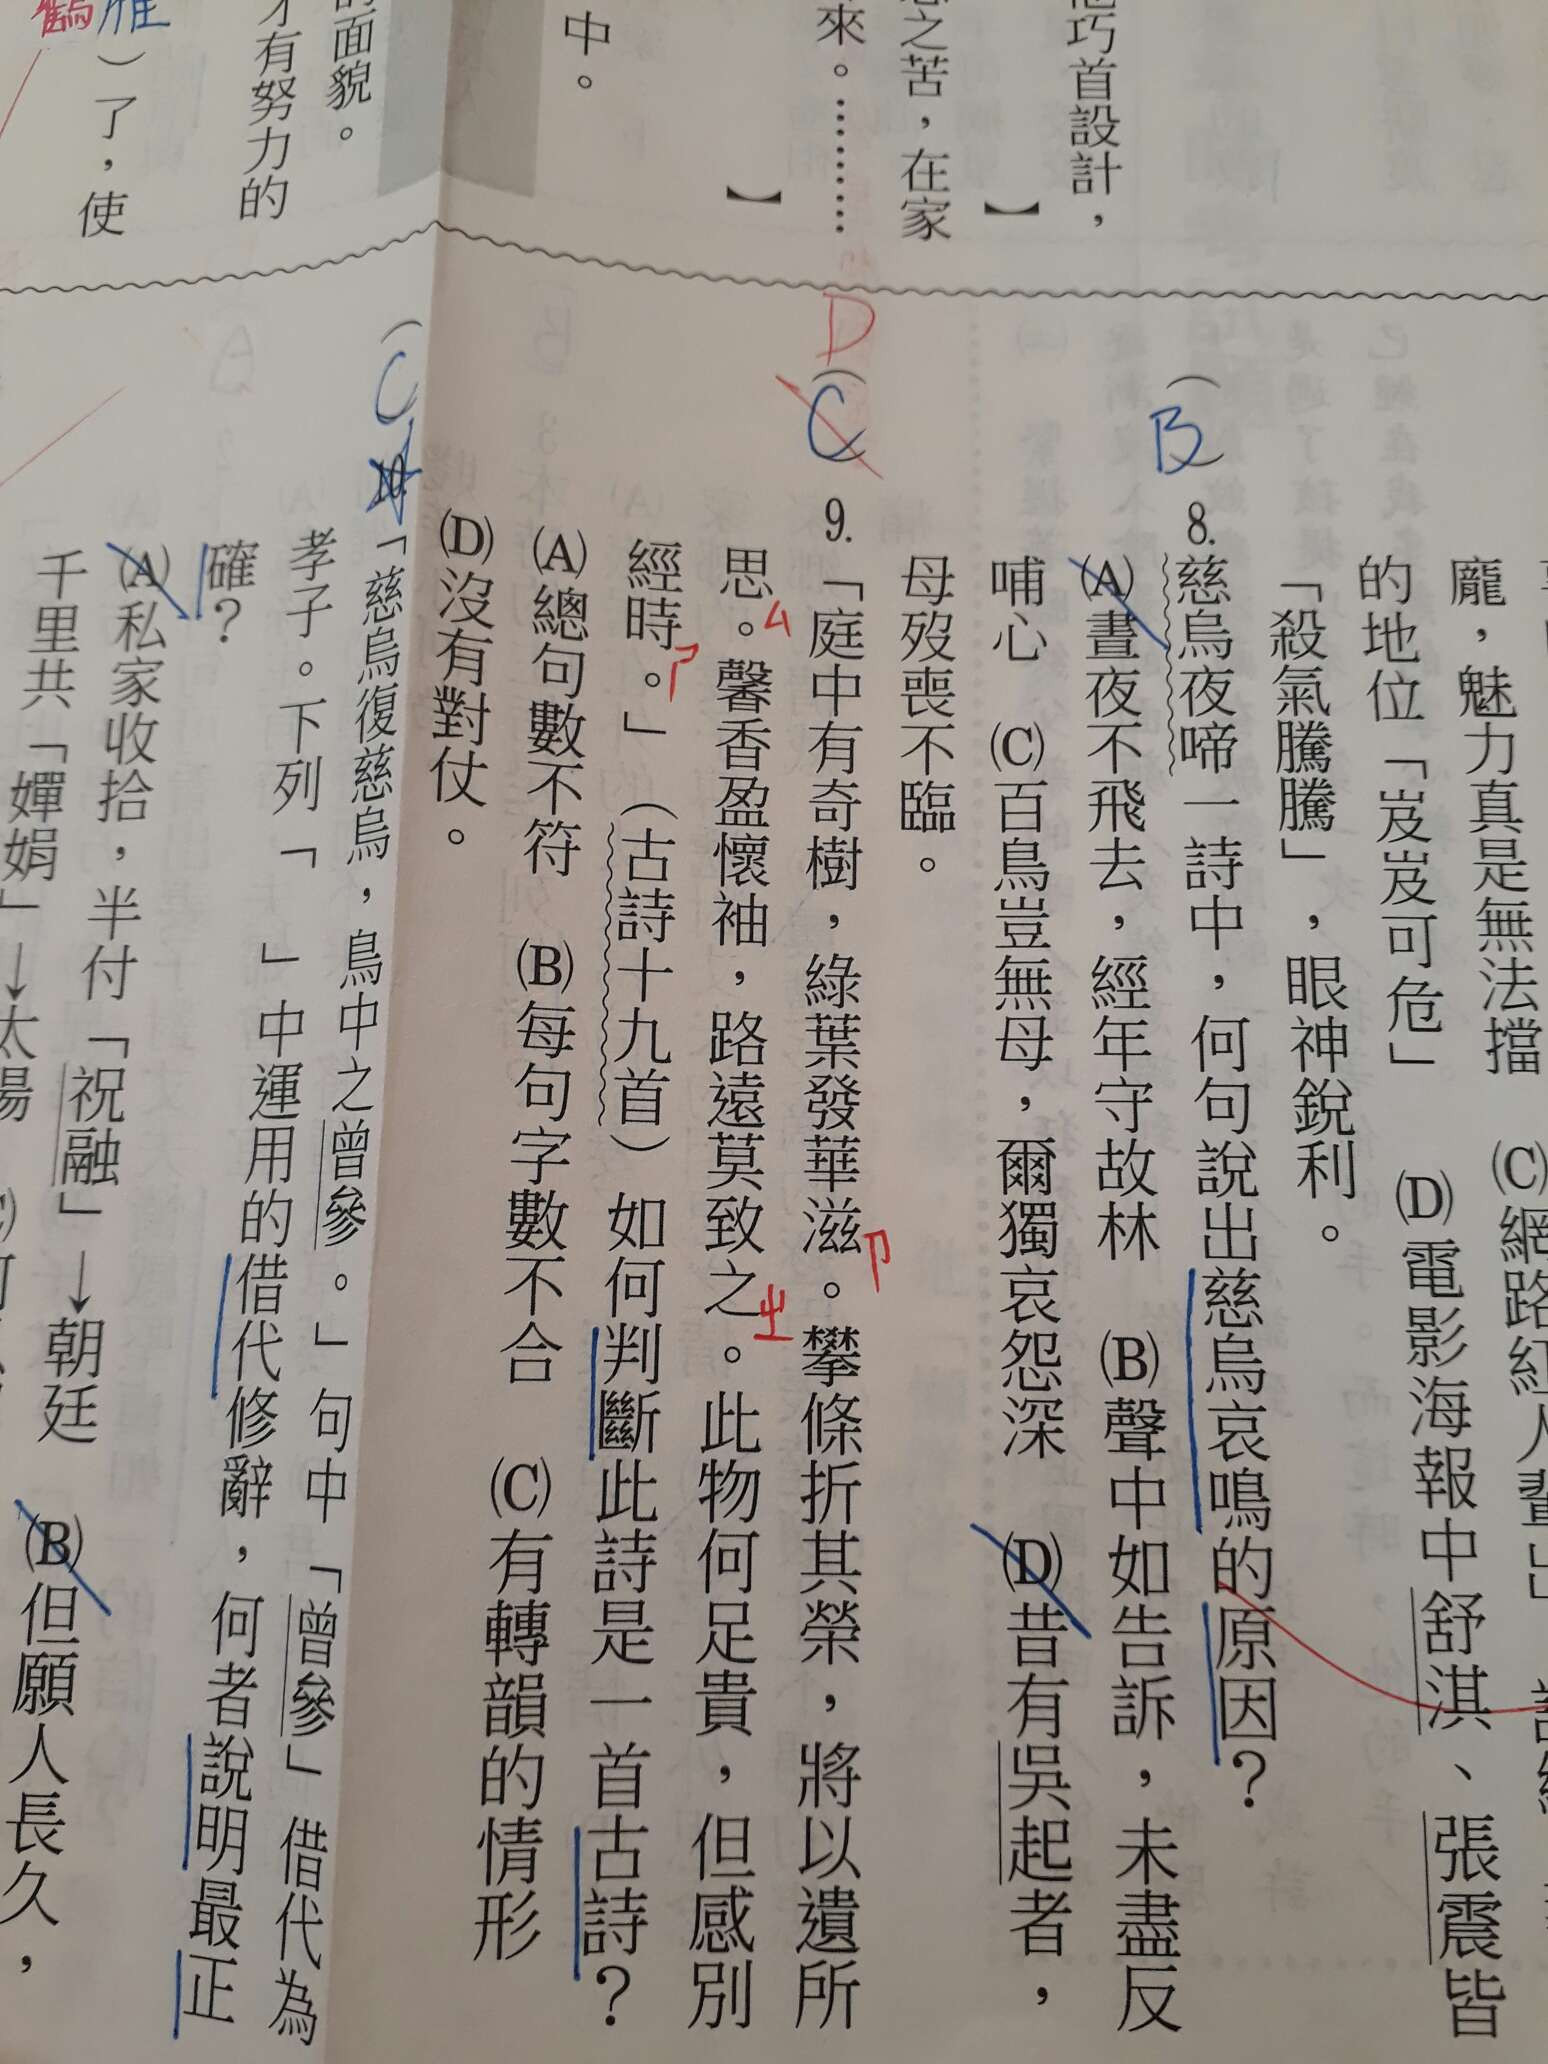 他巧首設計，
思之苦，在家
】
來。…………
】
中。
的面貌。
才有努力的
鶴雁）了，使
龐，魅力真是無法擋
(C)網路紅人輩出」
的地位「岌岌可危」
(D)電影海報中舒淇、張震皆
「殺氣騰騰」，眼神銳利。
（B）8.慈烏夜啼一詩中，何句說出慈烏哀鳴的原因？
(A)晝夜不飛去，經年守故林　(B)聲中如告訴，未盡反
哺心　(C)百鳥豈無母，爾獨哀怨深　(D)昔有吳起者，
母歿喪不臨。
D
（C）9.「庭中有奇樹，綠葉發華滋。攀條折其榮，將以遺所
ㄗ
思。馨香盈懷袖，路遠莫致之。此物何足貴，但感別
ㄙ
ㄓ
經時。」（古詩十九首）如何判斷此詩是一首古詩？
ㄕ
(A)總句數不符　(B)每句字數不合　(C)有轉韻的情形
(D)沒有對仗。
（C）10.「慈烏復慈烏，鳥中之曾參。」句中「曾參」借代為
孝子。下列「　　」中運用的借代修辭，何者說明最正
確？
(A)私家收拾，半付「祝融」→朝廷　(B)但願人長久，
千里共「嬋娟」→太陽